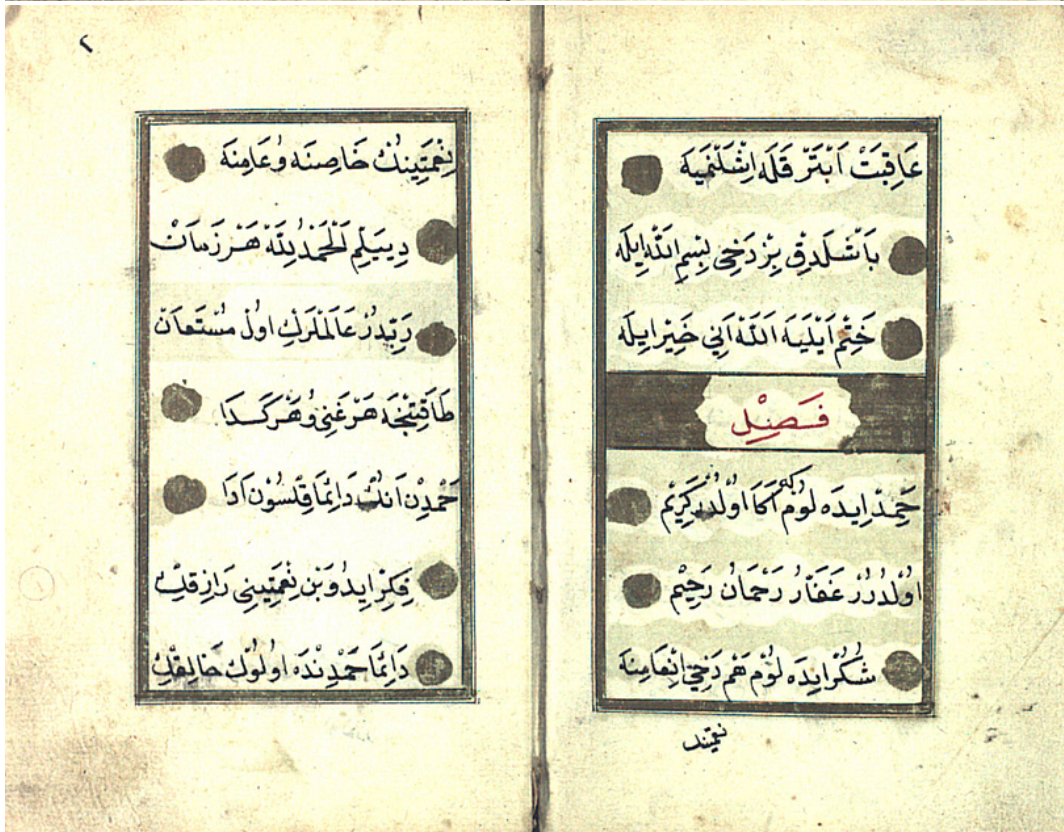 عَاقِبَتْ اَبْتَرْ قَلَه اِشْلَنْمَيَه
بَاشْلَدِقْ بِزْ دَخِى بِسْمِ اللّٰه اِيلَه
خَتْمْ اَيْلَيَه اَللّٰه اَنِي خَيْر اِيلَه
فَصْلْ
حَمْدْ اِيدَه لُومْ اَكَا كِه اوُلْدُرْ كَرِيمْ
اوُلْدُرُرْ غَفَّارُ رَحْمَانُ رَحِيمْ
شُكُرْ اِيدَه لُومْ هَمْ دَخِي اِنْعَامِنَه
نعمتينك
٢
نِعْمَتِينُكْ خَاصِنَه وُ عَامِنَه
دِييَلِمْ اَلْحَمْدُ لِلّٰه هَرْ زَمَانْ
رَبِّدُرْ عَالَمْلَرِكْ اوُلْ مُسْتَعَانْ
طَاقَتِنْجَه هَرْ غَنِي وُ هَرْ كَدَا
حَمْدِنْ اَنُكْ دَائِمَا قِلْسُونْ اَدَا
فِكِرْ اِيدُوبَنْ نِعْمَتِينِي رَازِقِكْ
دَائِمَا حَمْدِنْدَه اوُلُوكْ خَالِقِكْ